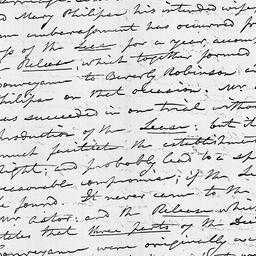 and Mary Philipse his intended wife
an embarrassment has occurred fr
ss of the Lease for a year, accom
Release, which together formed
Conveyance to Beverly Robinson an
Philipse on that occasion. Mr.
as succeeded in one trial witho
production of the Lease, but it
much facilitate the establishmen
Right; and probably lead to a sp
reasonable compromise; if the Le
be found. It never came to the
Mr Astor: and the Release which
states that three parts of the Dee
Conveyance were originally